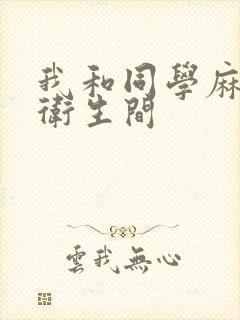 我和同學麻
衛生間
雲我無心